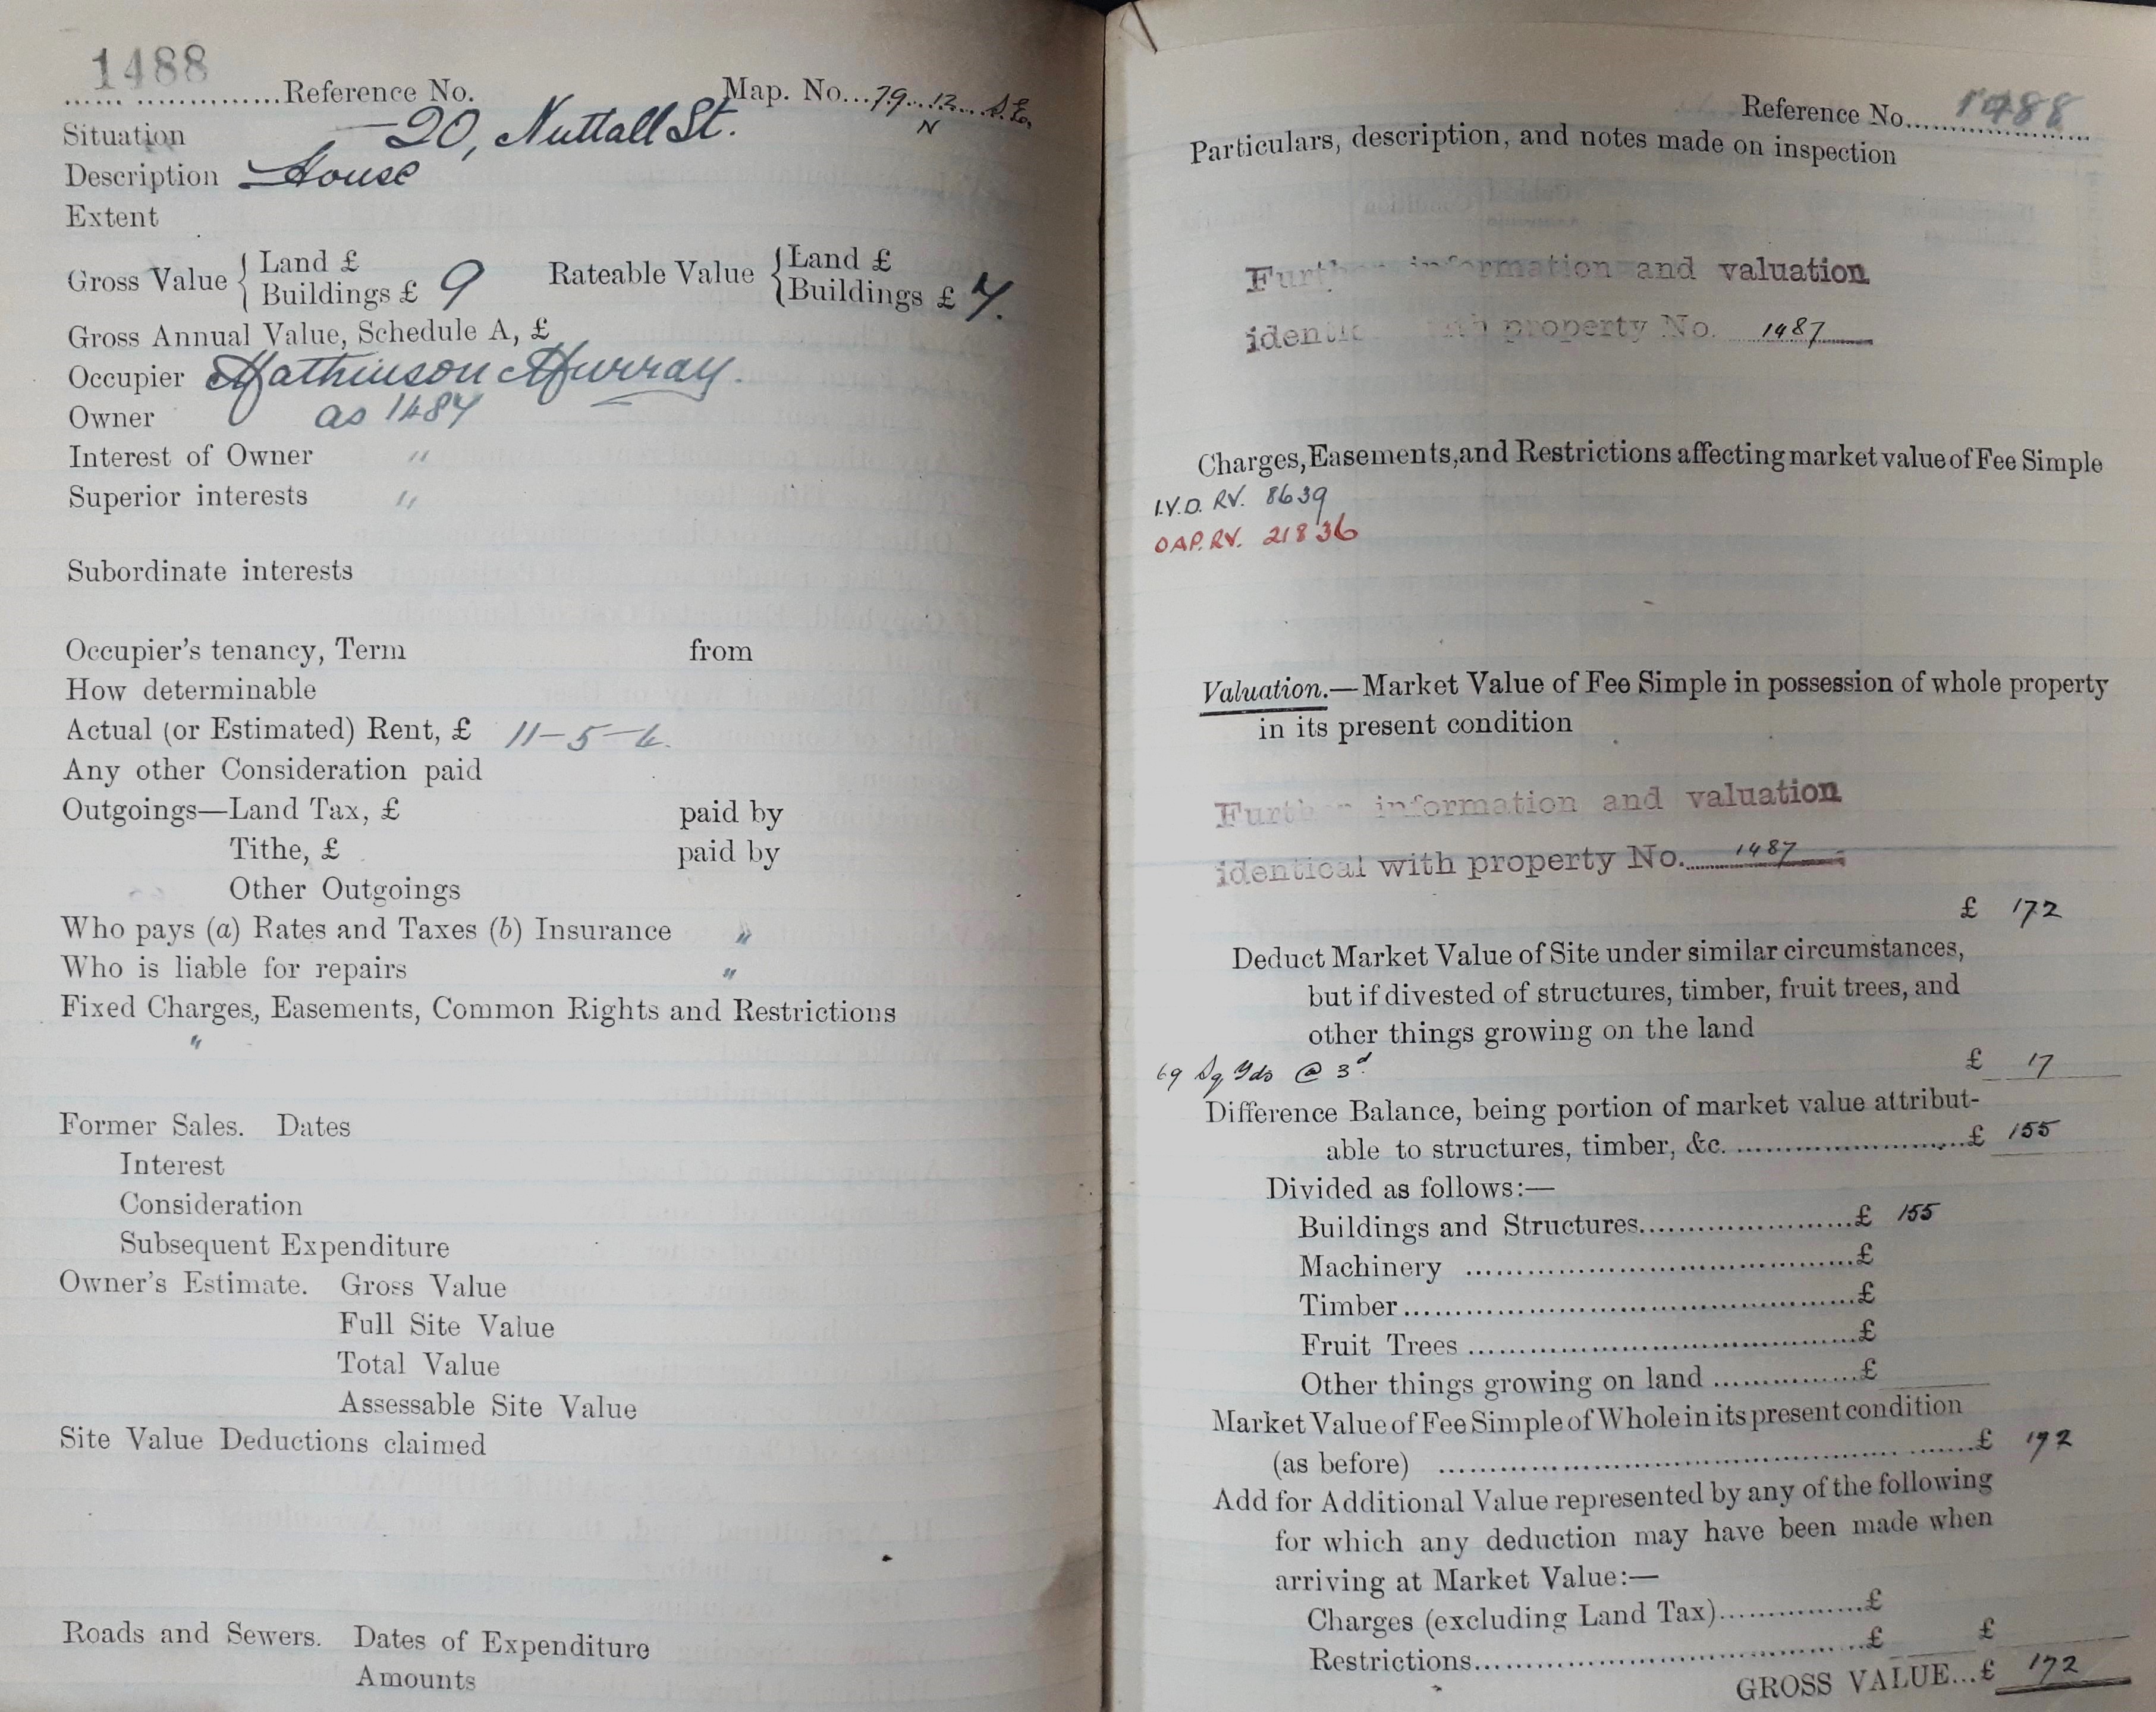 1488
Reference No. Map. No. 79. 12. S.E.
N
Situation 20, Nuttall St.
Description House
Extent
Gross Value { Land £
Buildings £ 9 Rateable Value { Land £
Buildings £ 7.
Gross Annual Value, Schedule A, £
Occupier Mathinson Murray.
Owner as 1487
Interest of Owner "
Superior interests "
Subordinate interests
Occupier's tenancy, Term from
How determinable
Actual (or Estimated) Rent, £ 11-5-4.
Any other Consideration paid
Outgoings—Land Tax, £ paid by
Tithe, £ paid by
Other Outgoings
Who pays (a) Rates and Taxes (b) Insurance "
Who is liable for repairs "
Fixed Charges, Easements, Common Rights and Restrictions
"
Former Sales. Dates
Interest
Consideration
Subsequent Expenditure
Owner's Estimate. Gross Value
Full Site Value
Total Value
Assessable Site Value
Site Value Deductions claimed
Roads and Sewers. Dates of Expenditure
Amounts
Reference No. 1488
Particulars, description, and notes made on inspection
Further information and valuation
identical with property No. 1487
Charges, Easements, and Restrictions affecting market value of Fee Simple
I.V.D. RV. 8639
OAP. RV. 21836
Valuation.—Market Value of Fee Simple in possession of whole property
in its present condition
Further information and valuation
identical with property No. 1487
£ 172
Deduct Market Value of Site under similar circumstances,
but if divested of structures, timber, fruit trees, and
other things growing on the land
69 Sq Yds @ 3d. £ 17
Difference Balance, being portion of market value attribut-
able to structures, timber, &c. £ 155
Divided as follows:—
Buildings and Structures £ 155
Machinery £
Timber £
Fruit Trees £
Other things growing on land £
Market Value of Fee Simple of Whole in its present condition
(as before) £ 172
Add for Additional Value represented by any of the following
for which any deduction may have been made when
arriving at Market Value:—
Charges (excluding Land Tax) £
Restrictions £ £
GROSS VALUE...£ 172